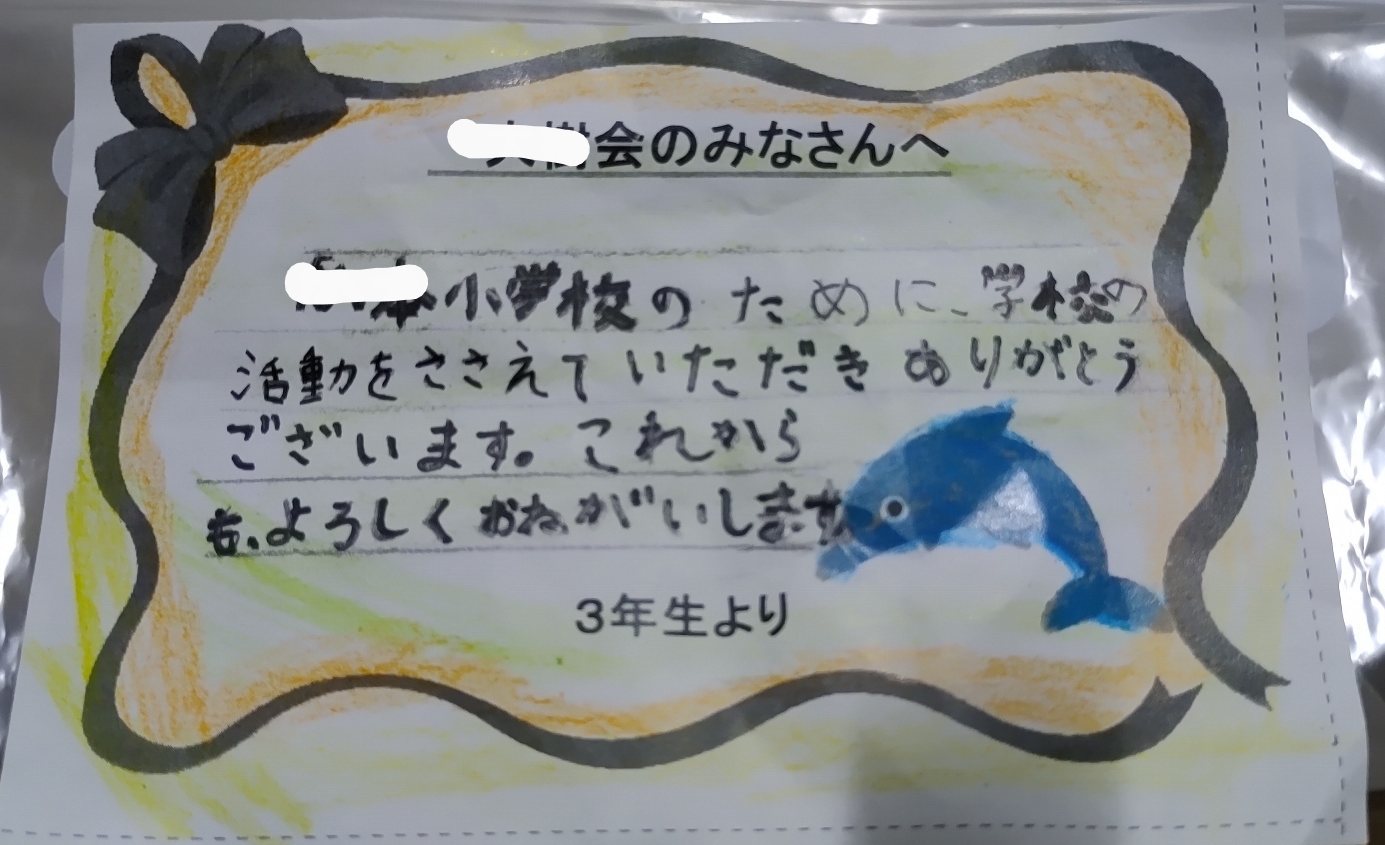 会のみなさんへ
小学校のために、学校の
活動をささえていただきありがとう
ございます。これから
も、よろしくおねがいします
3年生より